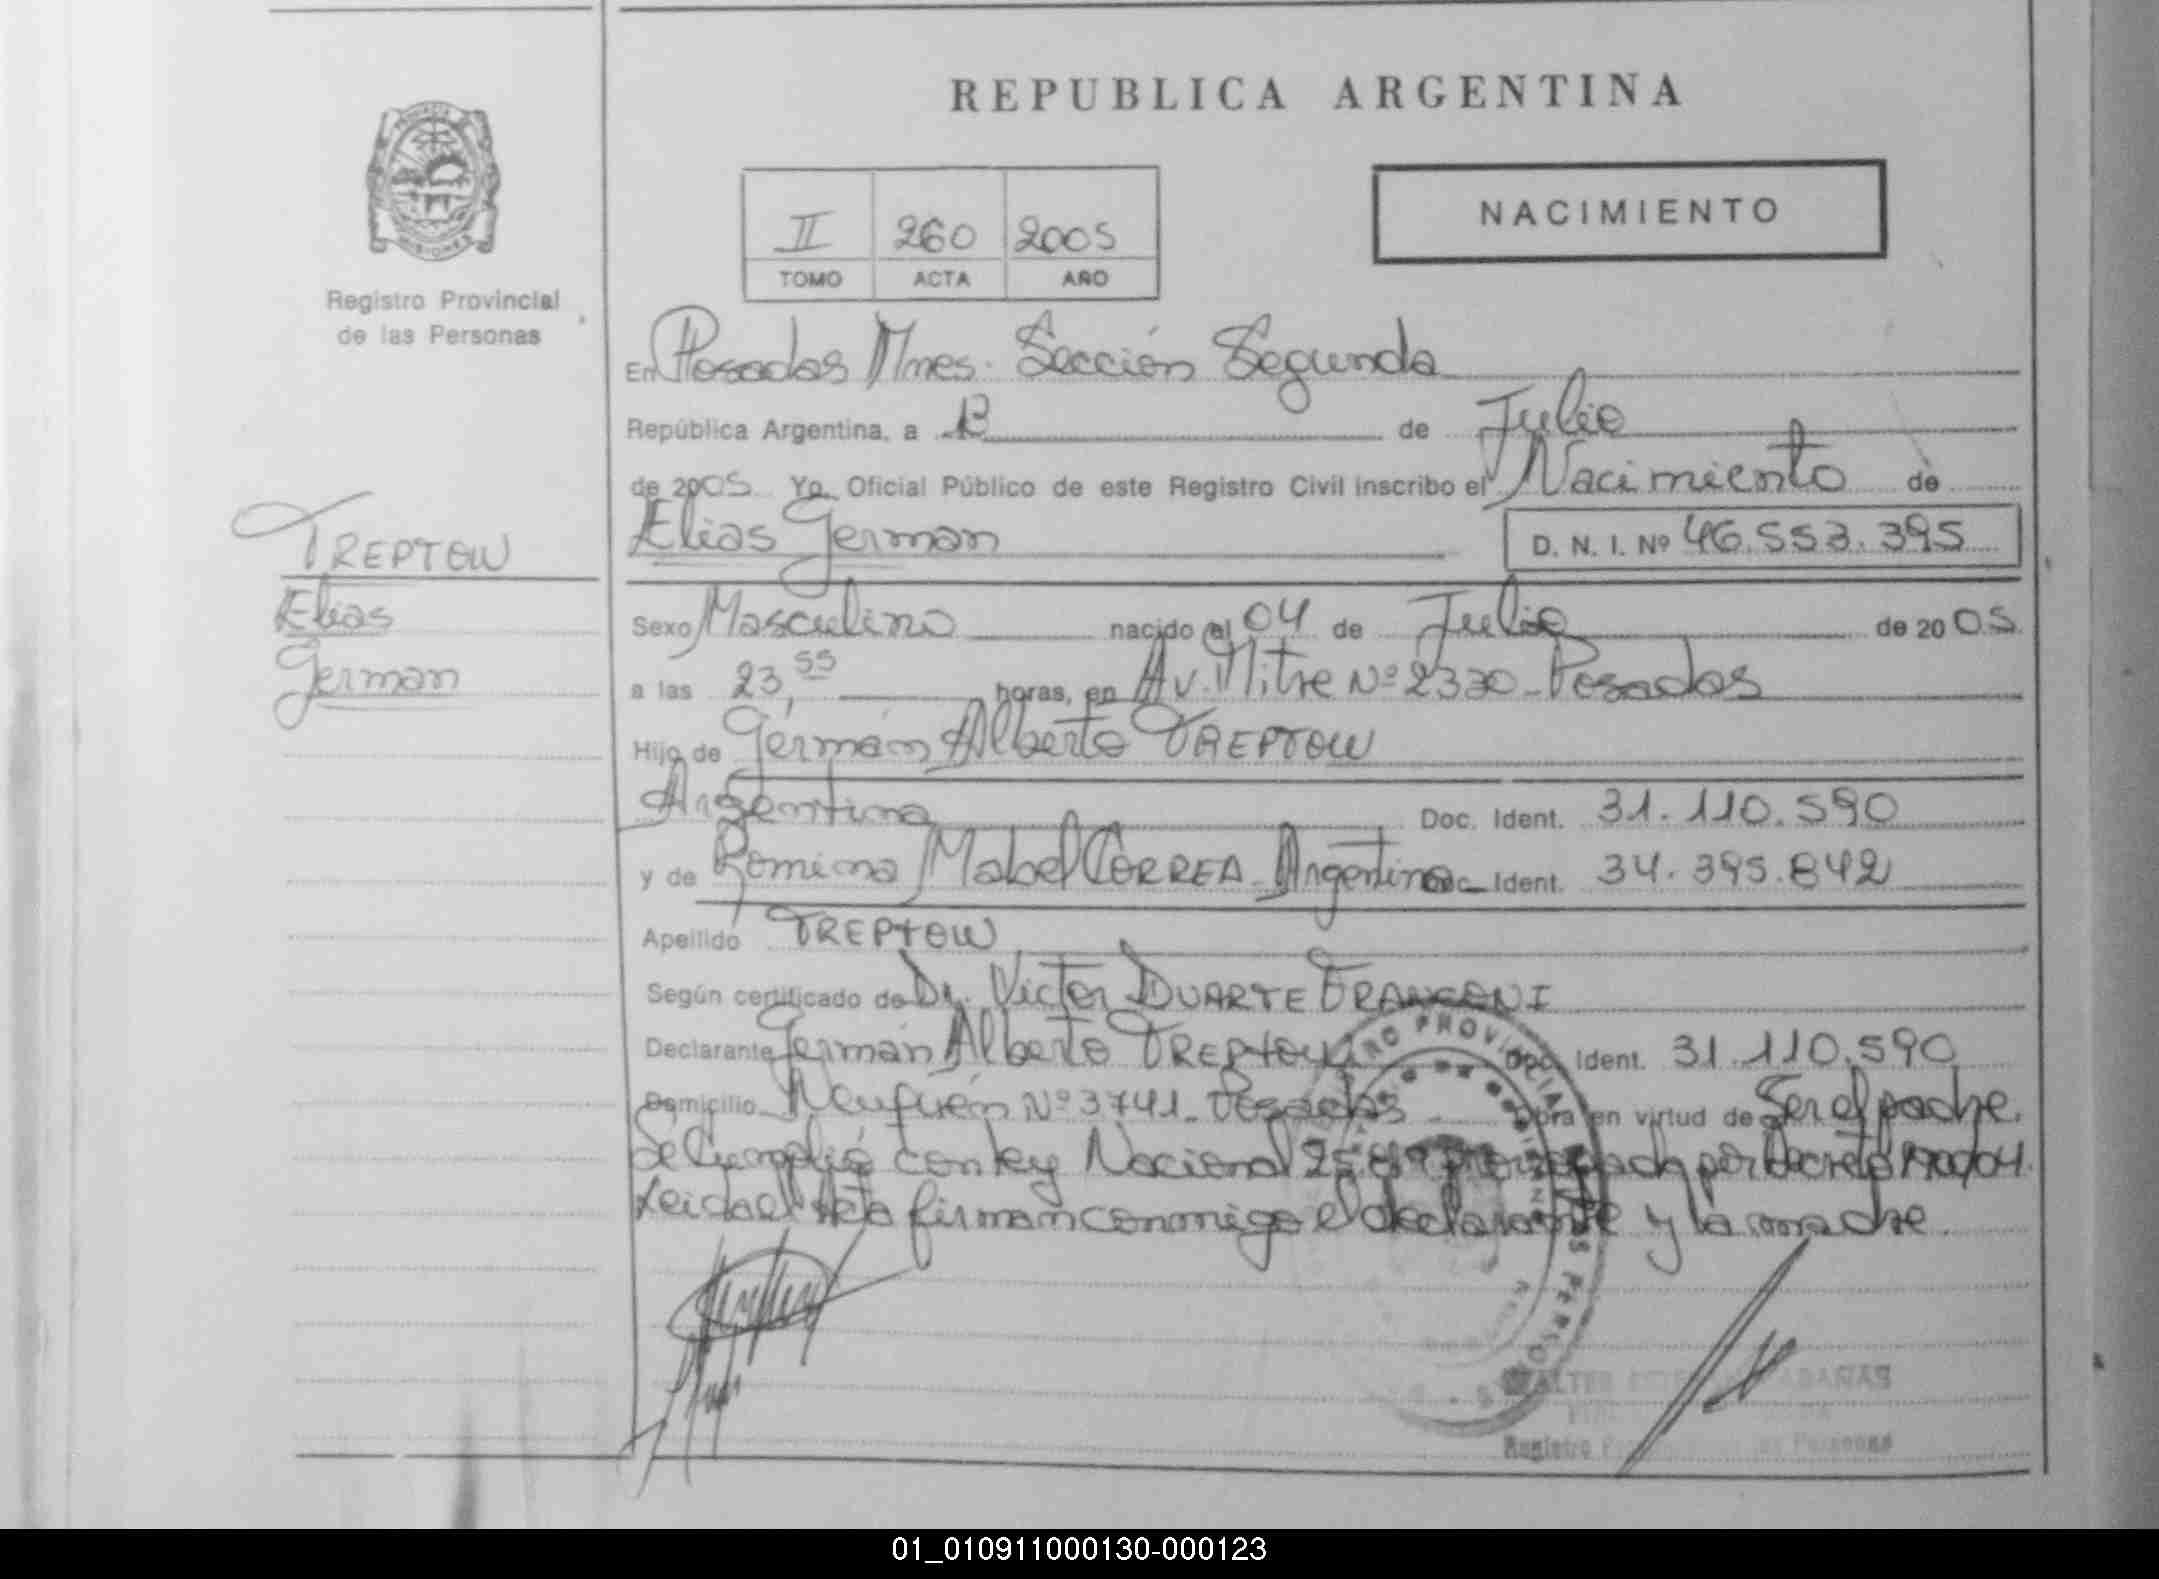 REPUBLICA ARGENTINA
NACIMIENTO
II 260 2005
TOMO ACTA AÑO
Registro Provincial
de las Personas
TREPTOW
Elias
German
En Posadas Mnes. Sección Segunda
República Argentina, a 13 de Julio
de 2005 Yo, Oficial Público de este Registro Civil inscribo el Nacimiento de
Elias German D. N. I. Nº 46.553.395
Sexo Masculino nacido el 04 de Julio de 2005
a las 23,55 horas, en Av. Mitre Nº 2330 Posadas
Hijo de Germán Alberto TREPTOW
Argentina Doc. Ident. 31.110.590
y de Romina Mabel CORREA Argentina Doc. Ident. 34.395.842
Apellido TREPTOW
Según certificado de Dr. Victor DUARTE
Declarante Germán Alberto TREPTOW Doc. Ident. 31.110.590
Domicilio Neuquén Nº 3741 Posadas Obra en virtud de Ser el padre.
Se Cumplió con ley Nacional por Decreto
Leida el Acta firman conmigo el declarante y la madre.
Registro Personas
01_010911000130-000123